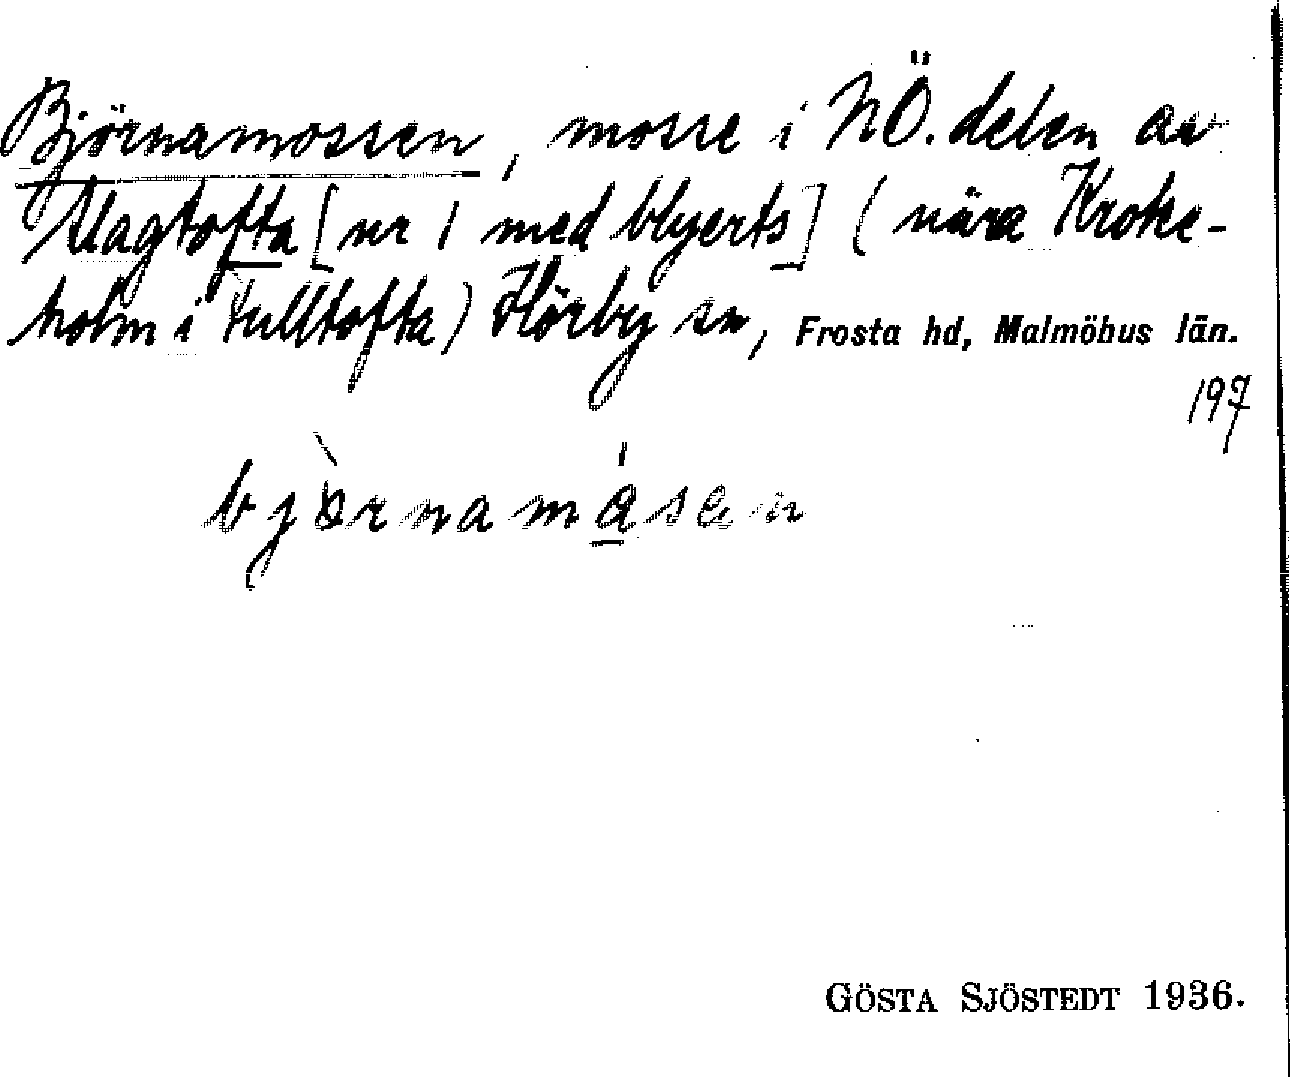 Björnamossen, mosse i NÖ. delen av
Ullagtofta [nr 1 med blyerts] (nära Kroke-
holm i Fulltofta) Hörby sn, Frosta hd, Malmöhus län.
197
bjòrnamásan
GÖSTA SJÖSTEDT 1936.